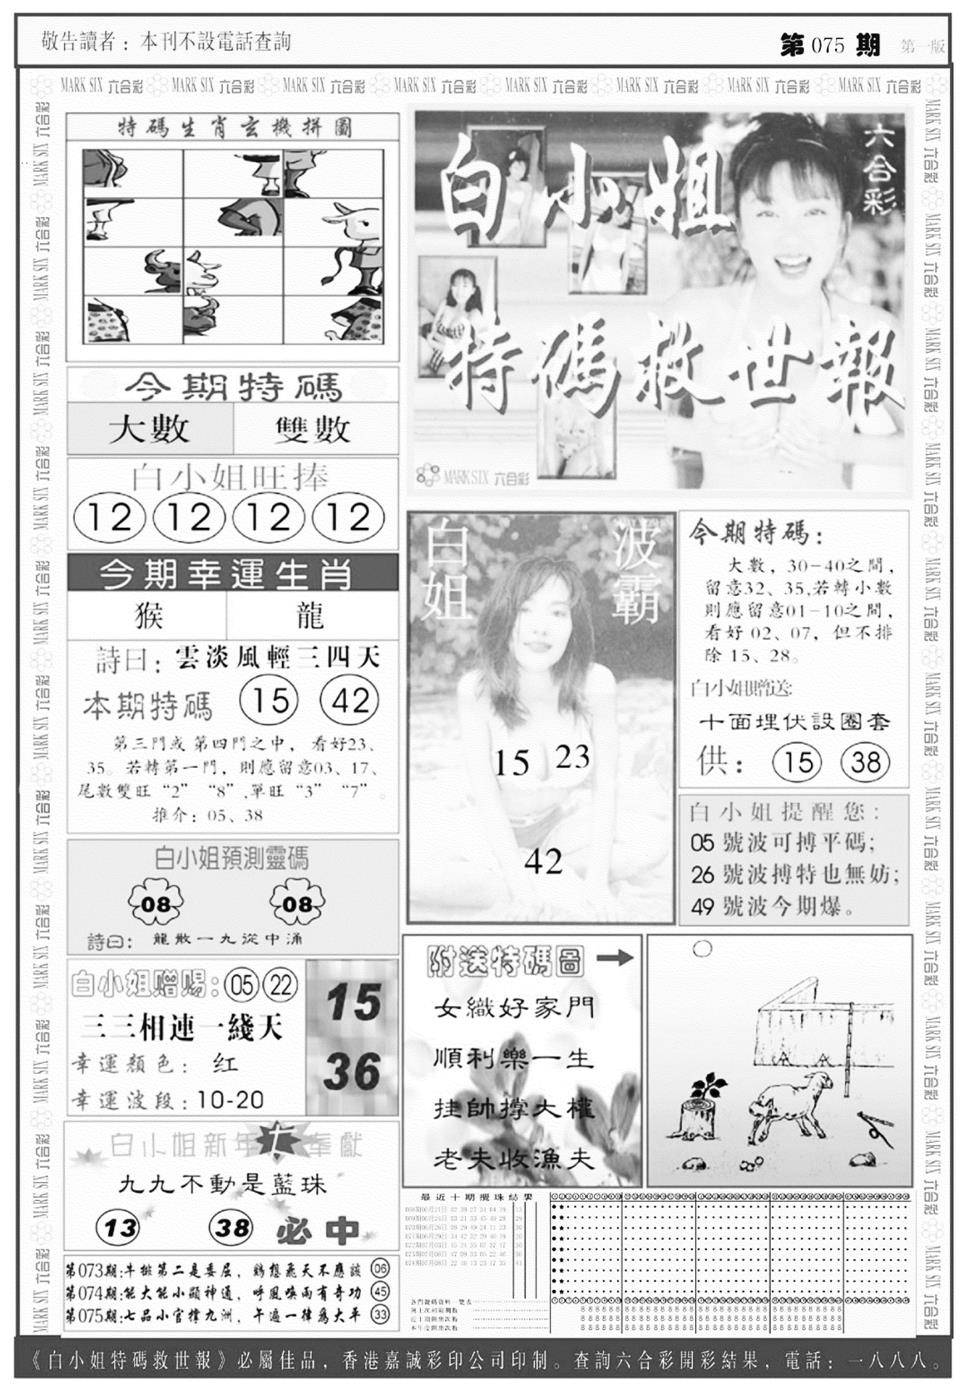 敬告讀者：本刊不設電話查詢
第 075 期 第一版
MARK SIX 六合彩 MARK SIX 六合彩 MARK SIX 六合彩 MARK SIX 六合彩 MARK SIX 六合彩 MARK SIX 六合彩 MARK SIX 六合彩 MARK SIX 六合彩
特碼生肖玄機拼圖
今期特碼
大數 雙數
白小姐旺捧
12 12 12 12
今期幸運生肖
猴 龍
詩曰：雲淡風輕三四天
本期特碼 15 42
第三門或第四門之中，看好23、
35。若轉第一門，則應留意03、17、
尾數雙旺“2” “8”,單旺“3” “7”。
推介：05、38
白小姐預測靈碼
08 08
詩曰：龍散一九從中涌
白小姐赠赐：05 22
三三相連一綫天
幸運顏色：红
幸運波段：10-20
15
36
白小姐新年七奉獻
九九不動是藍珠
13 38 必中
第073期:牛排第二是委屈，鷄想飛天不應該 06
第074期:能大能小顯神通，呼風喚雨有奇功 45
第075期:七品小官撑九洲，午遍一律爲太平 33
白小姐
六合彩
特碼救世報
MARK SIX 六合彩
白姐 波霸
15 23
42
今期特碼：
大數，30-40之間，
留意32、35,若轉小數
則應留意01-10之間，
看好 02、07，但不排
除 15、28。
白小姐贈送:
十面埋伏設圈套
供： 15 38
白小姐提醒您：
05 號波可搏平碼;
26 號波搏特也無妨;
49 號波今期爆。
附送特碼圖
女織好家門
順利樂一生
挂帥撑大權
老夫收漁夫
最近十期攪珠結果
《白小姐特碼救世報》必屬佳品，香港嘉誠彩印公司印制。查詢六合彩開彩結果，電話：一八八八。